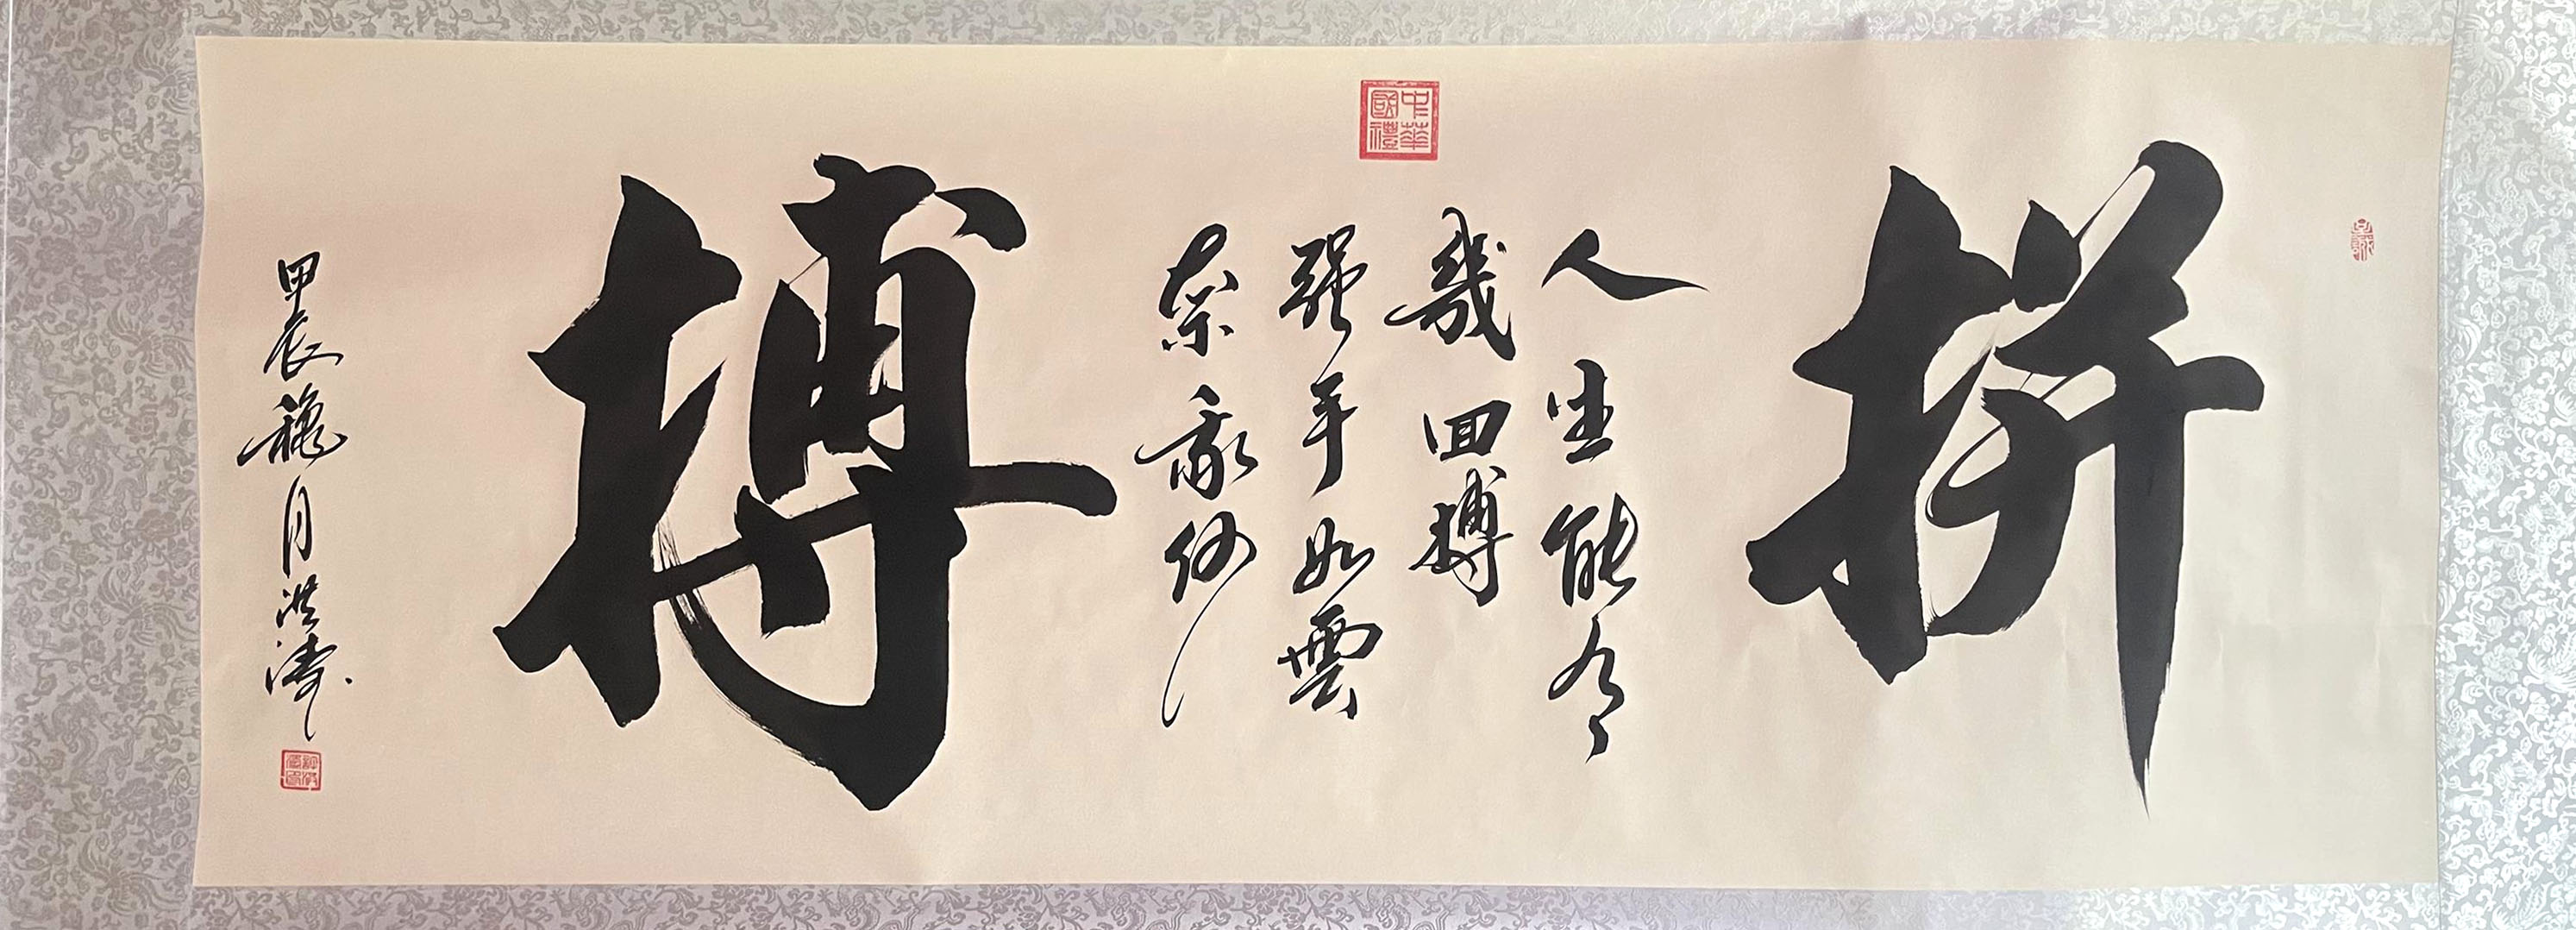 拼
人生能有
幾回搏
强手如雲
奈我何
搏
甲辰龝月洪濤
中華國禮